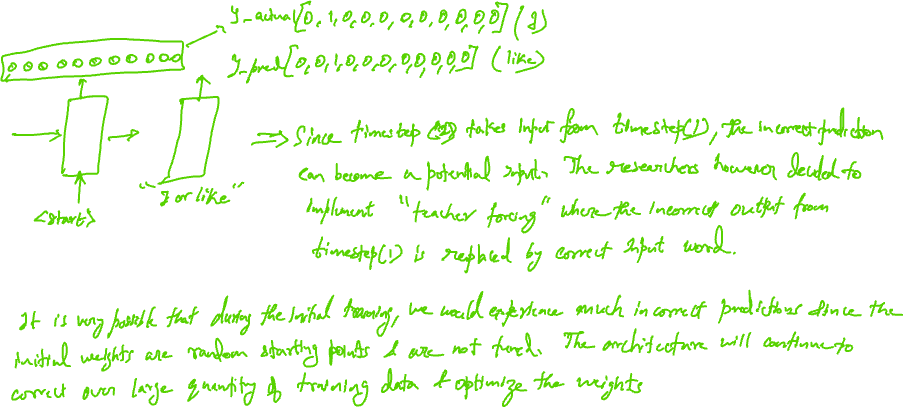 Y_actual[0, 1, 0, 0, 0, 0, 0, 0, 0, 0, 0] (I)
Y_pred[0, 0, 1, 0, 0, 0, 0, 0, 0, 0, 0] (like)
<start>
"I or like"
⇒ Since timestep (2) takes input from timestep(1), the incorrect prediction
can become a potential input. The researchers however decided to
implement "teacher forcing" where the incorrect output from
timestep(1) is replaced by correct input word.
It is very possible that during the initial training, we would experience much incorrect predictions since the
initial weights are random starting points & are not tuned. The architecture will continue to
correct over large quantity of training data & optimize the weights